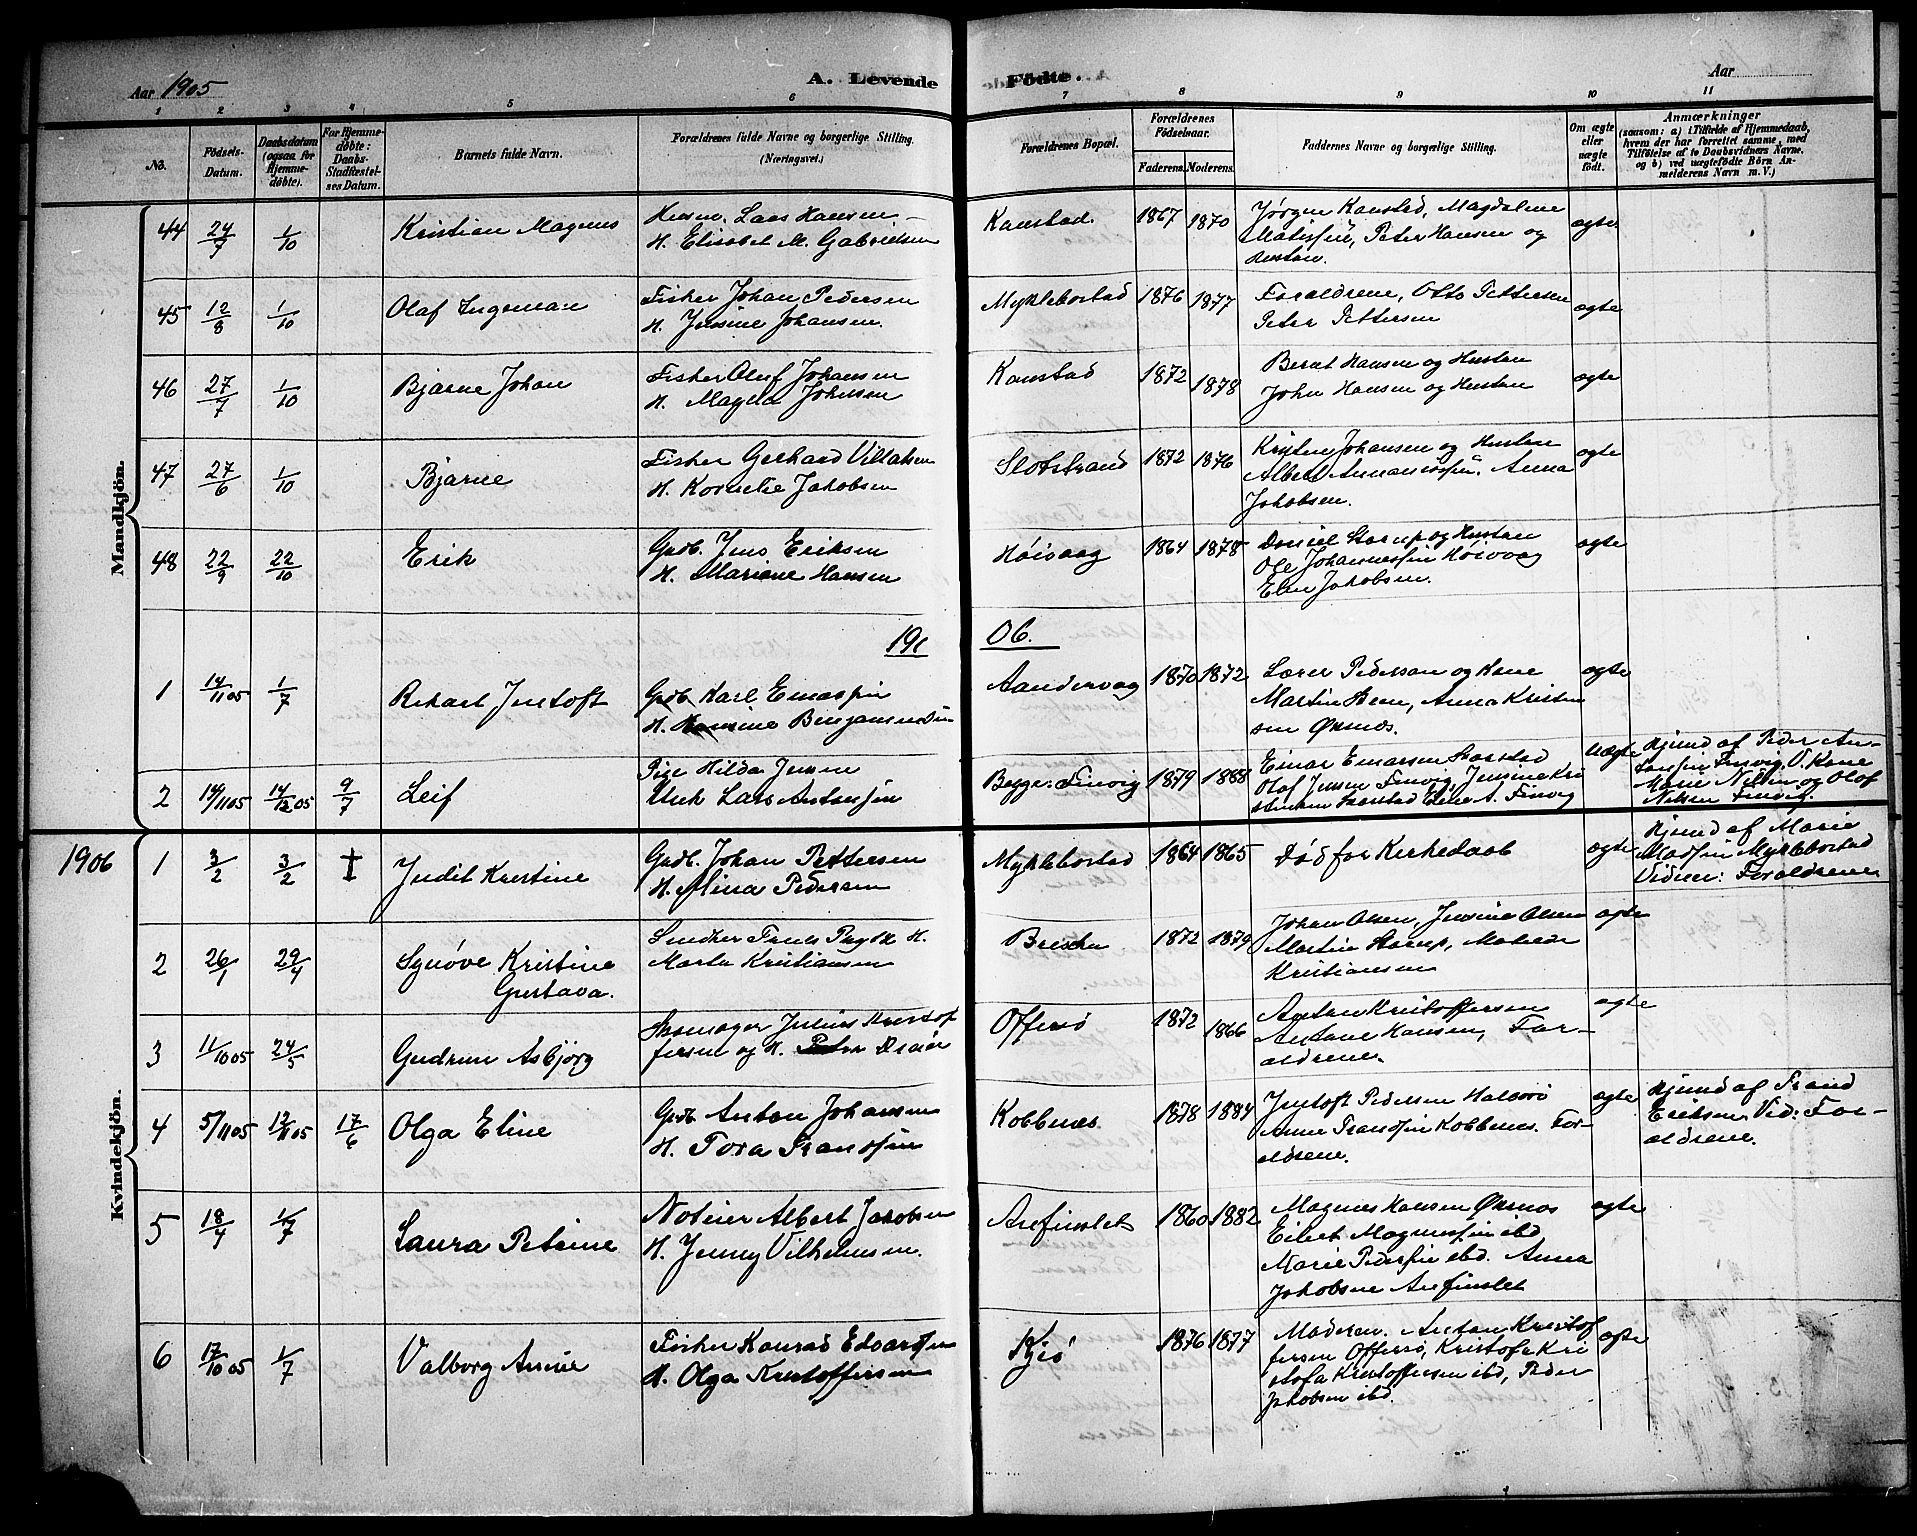 Aar 1905
A. Levende
Födte.
Aar
1 2 3 4 5 6 7 8 9 10 11
No.
Födsels-
Datum.
Daabsdatum
(ogsaa for
Hjemme-
döbte).
For Hjemme-
døbte:
Daabs-
Stadfæstel-
ses Datum.
Barnets fulde Navn.
Forældrenes fulde Navne og borgerlige Stilling.
(Næringsvei.)
Forældrenes Bopæl.
Forældrenes
Födselsaar.
Faderens. Moderens.
Faddernes Navne og borgerlige Stilling.
Om ægte
eller
uægte
født.
Anmærkninger
(saasom: a) i Tilfælde af Hjemmedaab,
hvem der har forrettet samme, med
Tilföielse af to Daabsvidners Navne.
og b) ved uægtefödte Börn An-
melderens Navn m. V.)
Mandkjön.
44 24/7 1/10 Kristian Magnus
Husm. Lars Hansen
H. Elisabet M. Gabrielsen
Kanstad. 1867 1870
Jørgen Kanstad, Magdalene
Peter Hansen og
Hustru.
ægte
45 12/8 1/10 Olaf Ingeman
Fisker Johan Pedersen
H. Jensine Johansen.
Myklebostad 1876 1877
Forældrene, Otto Pettersen
Peter Pettersen
ægte
46 27/7 1/10 Bjarne Johan
Fisker Oluf Johansen
H. Magda Johnsen
Kanstad 1872 1878
Berat Hansen og Hustru
John Hansen og Hustru
ægte
47 27/6 1/10 Bjarne
Fisker Gerhard
H. Kornelie Jakobsen
Slotstrand 1872 1876
Johansen og Hustru
Albert Anna
Jakobsen.
ægte
48 22/9 22/10 Erik
Grdb. Jens Eriksen
H. Mariane Hansen
Høisvaag 1864 1878
Daniel Storup og Hustru
Ole Johannessen
Jakobsen.
ægte
1906.
1 14/11 05 1/7 Rikart Jentoft
Grdb. Karl
H.
1870 1872
Lærer Pedersen og Kone
Martin Anna Kristen
sen Øksnes.
ægte
2 14/11 05 14/12 05 9/7 Leif
Pige Hilda Jensen
Lars
Begge: Finvig 1879 1888
Einar
Olaf Jensen Finvig,
Finvig
uægte
Hjemd af Peder An-
Finvig. V. Kone
Marie Nilsen og Olaf
Nilsen Finvig.
Kvindekjön.
1906
1 3/2 3/2 † Judit Kristine
Grdb. Johan Pettersen
H. Mina Pedersen
Myklebostad 1864 1865
Død før Kirkedaab
ægte
Hjemd af Marie
Madsen Myklebostad
Vidner: Forældrene
2 26/1 29/4 Synøve Kristine
Gustava.
H.
Marta Kristiansen
1872 1879
Johan Olsen, Jensine Olsen
Martin Storup,
Kristiansen
ægte
3 11/10 05 24/5 Gudrun Asbjörg
Skomager Julius Kristof
fersen og H.
Offersø 1872 1866
Anton Kristoffersen
Antone Hansen, For-
ældrene.
ægte
4 5/11 05 12/11 05 17/6 Olga Eline
Grdb. Anton Johansen
H. Tora Fransen
Kobbenes. 1878 1884
Jentoft Pedersen
Anne Fransen Kobbenes. For-
ældrene.
ægte
Hjemd af Frand
Eriksen. Vid: For-
ældrene.
5 18/4 1/7 Laura Petrine
Noteier Albert Jakobsen
H. Jenny Vilhelmsen.
Arefinslet 1860 1882
Magnus Hansen Øksnes
Magnussen ibd
Marie Pedersen ibd. Anna
Jakobsen Arefinslet
ægte
6 17/10 05 1/7 Valborg Anine
Fisker Konrad Edvardsen
H. Olga Kristoffersen
Kjiö 1876 1877
Moderen. Anton Kristof
fersen Offersø,
Kristoffersen ibd, Peder
Jakobsen ibd.
ægte